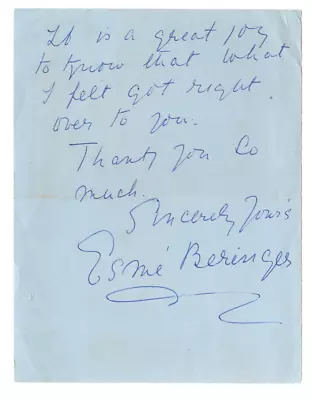 It is a great joy
to know that what
I felt got right
over to you.
Thank you so
much.
Sincerely Yours
Esmé Beringer